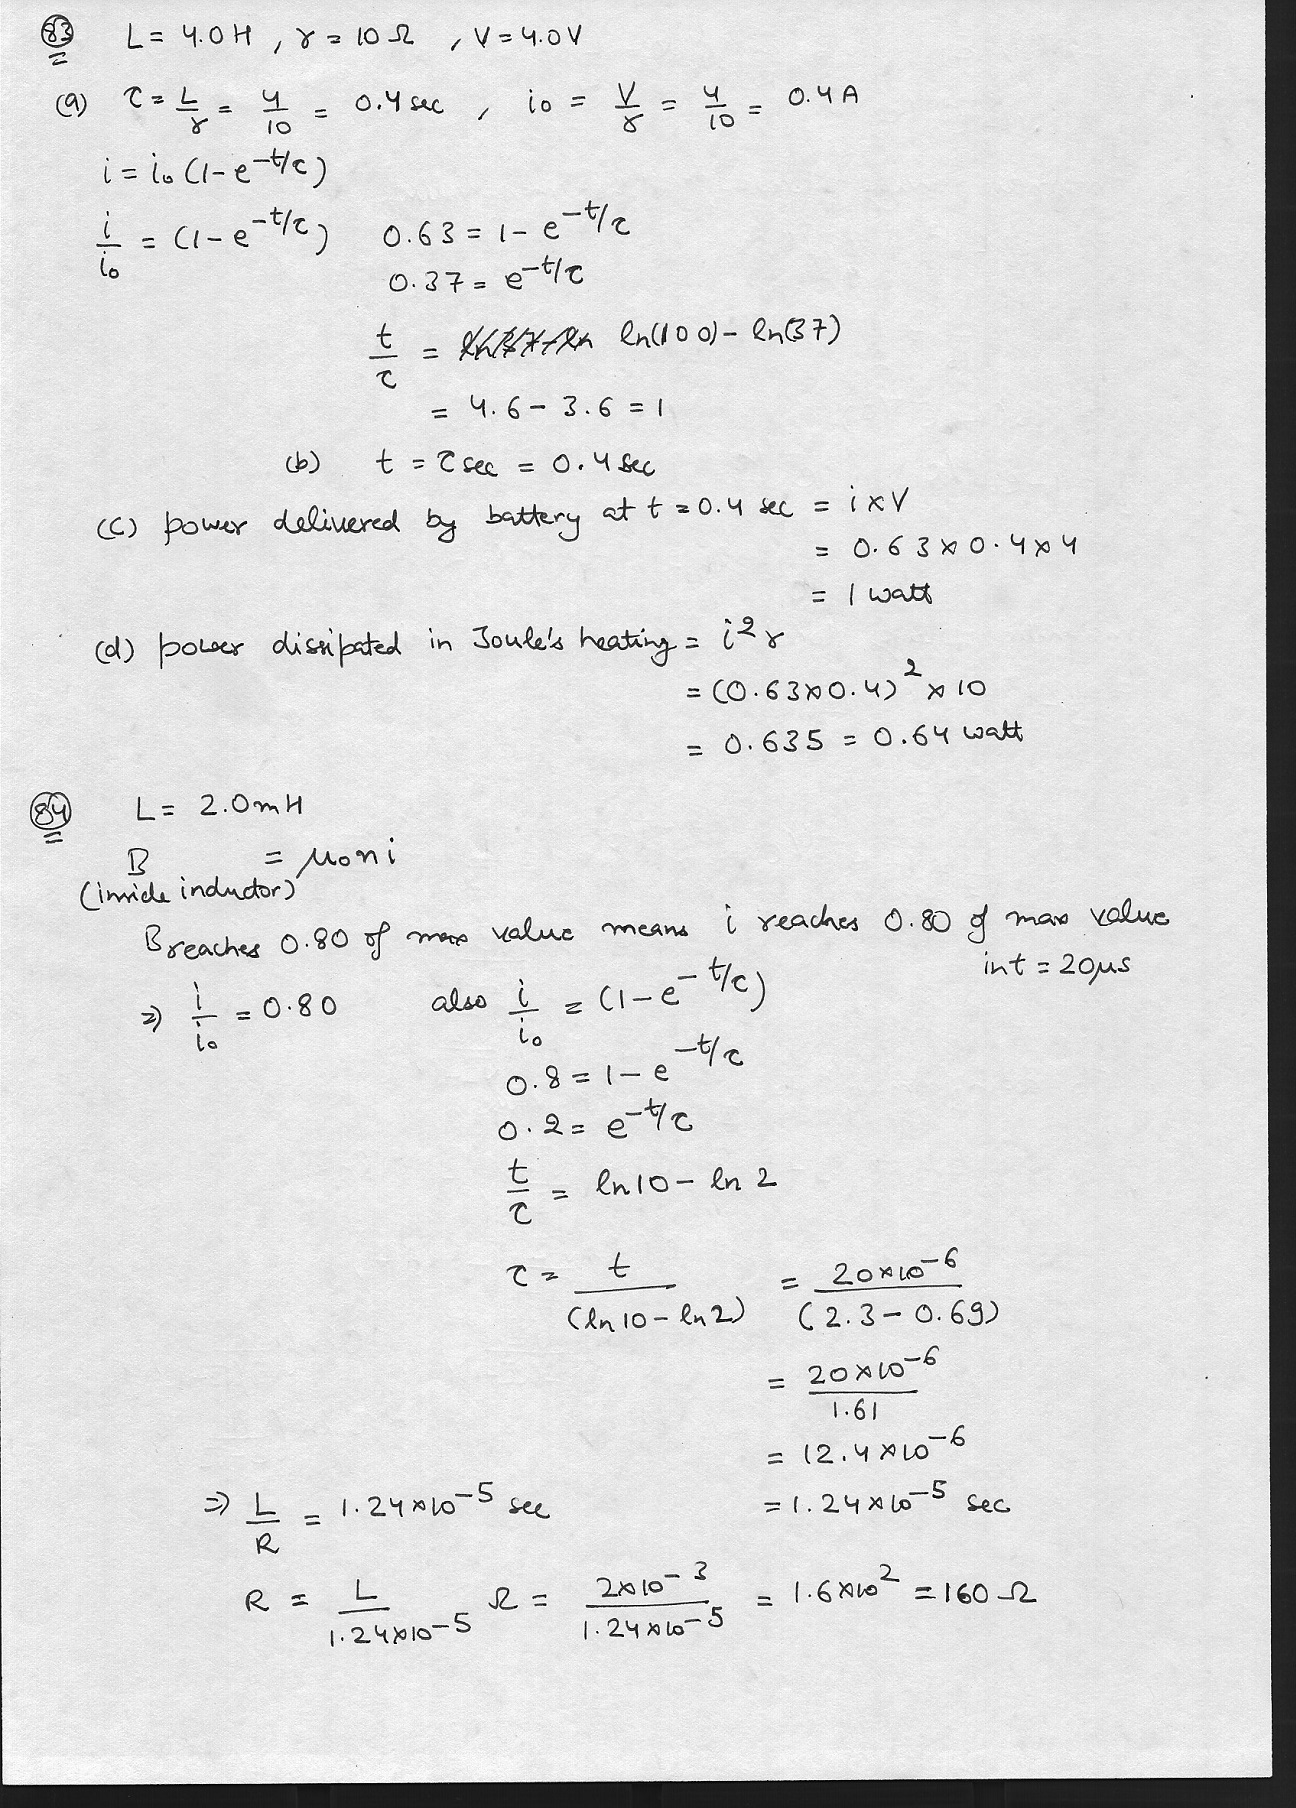 83 L = 4.0 H , r = 10 Ω , V = 4.0 V
(a) τ = L/r = 4/10 = 0.4 sec , i₀ = V/r = 4/10 = 0.4 A
i = i₀ (1 - e^-t/τ)
i/i₀ = (1 - e^-t/τ) 0.63 = 1 - e^-t/τ
0.37 = e^-t/τ
t/τ = ln(100) - ln(37)
= 4.6 - 3.6 = 1
(b) t = τ sec = 0.4 sec
(c) power delivered by battery at t = 0.4 sec = i × V
= 0.63 × 0.4 × 4
= 1 watt
(d) power dissipated in Joule's heating = i² r
= (0.63 × 0.4)² × 10
= 0.635 = 0.64 watt
84 L = 2.0 mH
B = μ₀ n i
(inside inductor)
B reaches 0.80 of max value means i reaches 0.80 of max value
in t = 20 μs
⇒ i/i₀ = 0.80 also i/i₀ = (1 - e^-t/τ)
0.8 = 1 - e^-t/τ
0.2 = e^-t/τ
t/τ = ln 10 - ln 2
τ = t/(ln 10 - ln 2) = 20 × 10⁻⁶/(2.3 - 0.69)
= 20 × 10⁻⁶/1.61
= 12.4 × 10⁻⁶
= 1.24 × 10⁻⁵ sec
⇒ L/R = 1.24 × 10⁻⁵ sec
R = L/1.24 × 10⁻⁵ Ω = 2 × 10⁻³/1.24 × 10⁻⁵ = 1.6 × 10² = 160 Ω